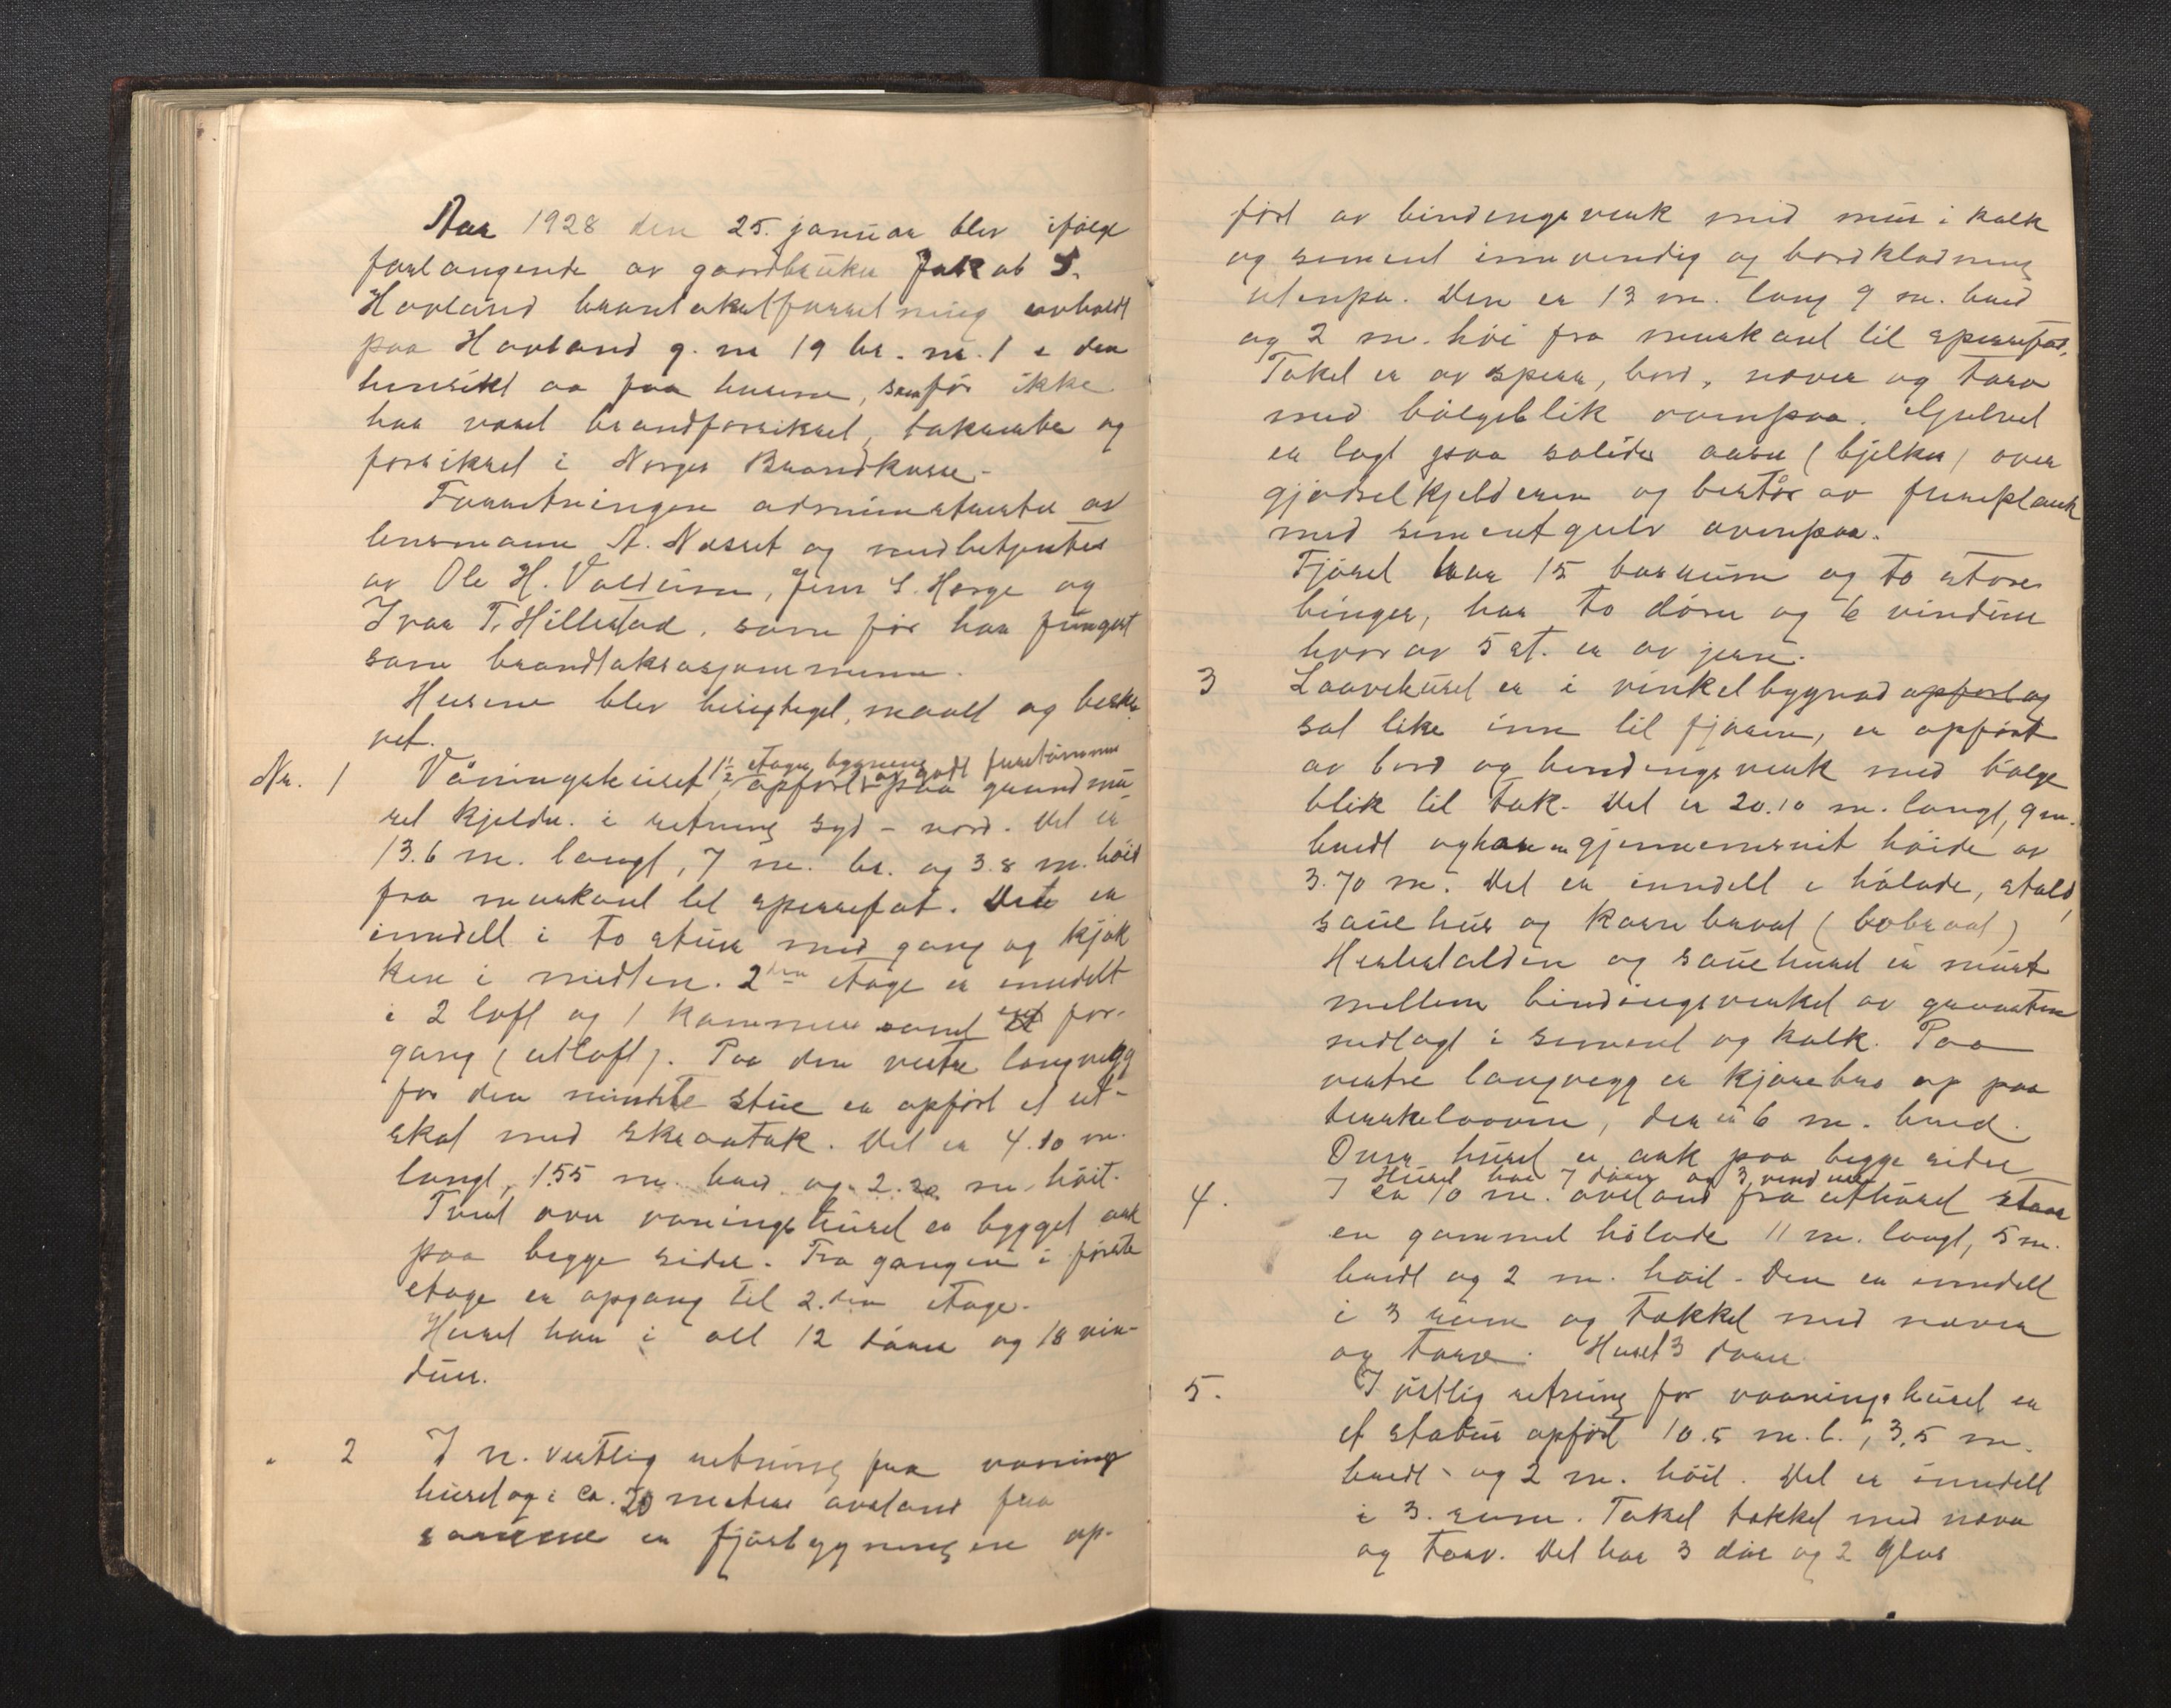 Aar 1928 den 25. januar blev ifølge
forlangende av gaardbruker Jakob S.
Hovland brandtakstforretning avholdt
paa Hovland g. nr 19 br. nr. 1 i den
hensikt aa faa husene, som før ikke
har været brandforsikret, taksert og
forsikret i Norges Brandkasse.
Forretningen administrertes av
lensmann A. Næset og medbetjentes
av Ole H. Valdeim, Jens S. Horge og
Ivar T. Hillestad, som før har fungert
som brandtaksasjonsmenn.
Husene blev besigtiget, maalt og beskre-
vet.
Nr. 1 Våningshuset, 1½ etages bygning av godt furetømmer
opført paa grundmu-
ret kjelder i retning syd - nord. Det er
13.6 m. langt, 7 m. br. og 3.8 m. høit
fra murkant til sperrefot. Det er
inndelt i to stuer med gang og kjøk
ken i midten. 2den etage er inndelt
i 2 loft og 1 kammer samt for-
gang (utloft). Paa den vestre langvegg
for den minste stue er opført et ut-
skot med skraatak. Det er 4.10 m.
langt, 1.55 m. bred og 2.20 m. høit.
Tvert over vaaningshuset er bygget ark
paa begge sider. Fra gangen i første
etage er opgang til 2.den etage.
Huset har i alt 12 dører og 18 vin-
duer.
" 2 I n. vestlig retning fra vaanings
huset og i ca. 20 meters avstand fra
samme er fjøsbygningen op-
ført av bindingsverk med mur i kalk
og sement innvendig og bordklædning
utenpa. Den er 13 m. lang 9 m. bred
og 2 m. høi fra murkant til sperrefot.
Taket er av sperr, bord, næver og torv
med bølgeblik ovenpaa. Gulvet
er lagt paa solide aaser (bjelker) over
gjødselkjelderen og består av fureplank
med sementgulv ovenpaa.
Fjøset har 15 baasrum og to store
binger, har to dører og 6 vinduer
hvorav 5 st. er av jern.
3 Laavehuset er i vinkelbygnad opført og
sat like inn til fjøsen, er opført
av bord og bindingsverk med bølge
blik til tak. Det er 20.10 m. langt, 9 m.
bredt og har en gjennemsnit høide av
3.70 m. Det er inndelt i hølade, stald,
sauehus og
Hestestalden og sauehuset er muret
mellem bindingsverket av graasten
nedlagt i sement og kalk. Paa
vestre langvegg er kjørebro op paa
treskeloven, den er 6 m. bred.
Over huset er ark paa begge sider
Huset har 7 dører og 3 vinduer
4. I ca 10 m. avstand fra uthuset staar
en gammel hølade 11 m. langt, 5 m.
bredt og 2 m. høit. Den er inndelt
i 3 rum og tækket med næver
og torv. Huset 3 dører.
5. I østlig retning for vaaningshuset er
et stabur opført 10.5 m. l., 3,5 m.
bredt og 2 m. høit. Det er inndelt
i 3. rum. Taket tækket med næver
og torv. Det har 3 dør og 2 glas